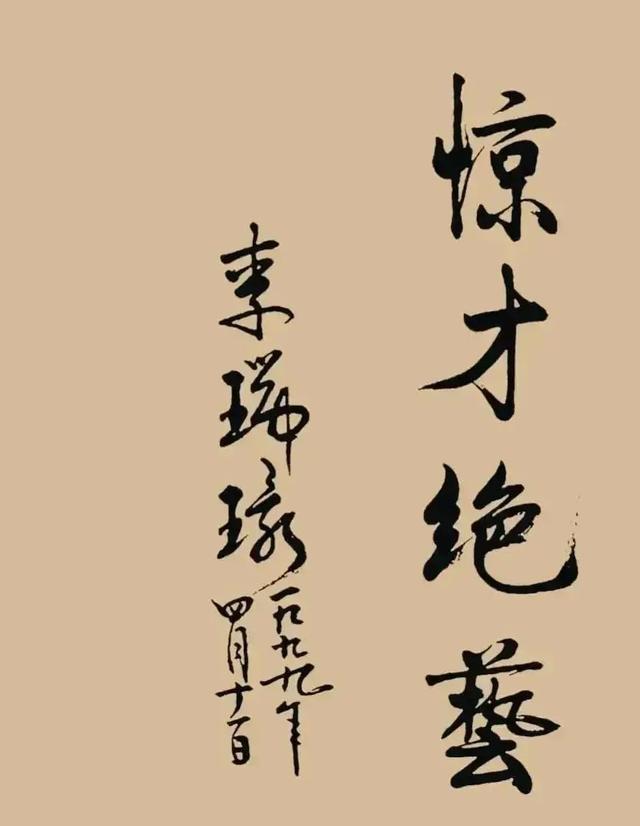 惊才绝藝
李瑞環
一九九九年
四月十一日